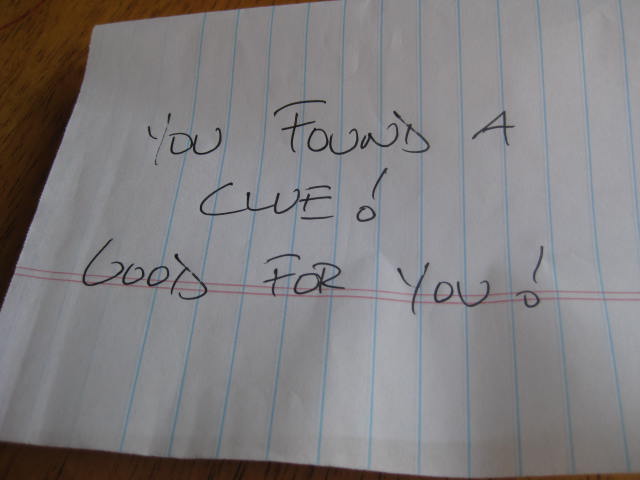 YOU FOUND A
CLUE!
GOOD FOR YOU!